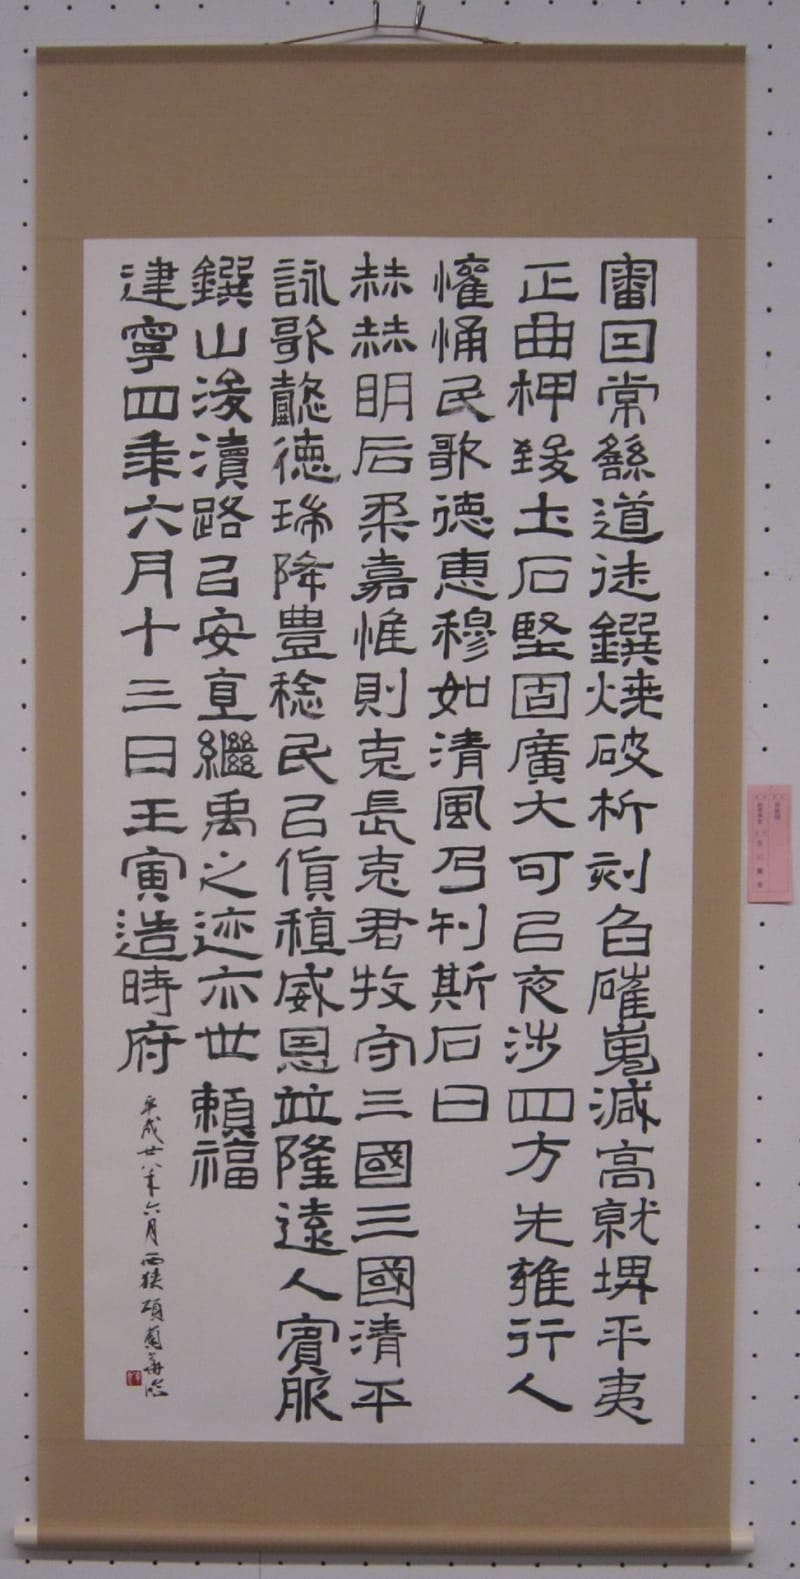 審囙常繇道徒鐉燒破析刻臽磪嵬減高就埤平夷
正曲柙致土石堅固廣大可㠯夜涉四方无雍行人
懽悀民歌德惠穆如清風乃刊斯石曰
赫赫明后柔嘉惟則克長克君牧守三國三國清平
詠歌懿德瑞降豐稔民㠯貨稙威恩竝隆遠人賓服
鐉山浚瀆路㠯安直繼禹之迹亦世賴福
建寧四年六月十三日壬寅造時府
平成廿八年六月 西狹頌 蘭華臨